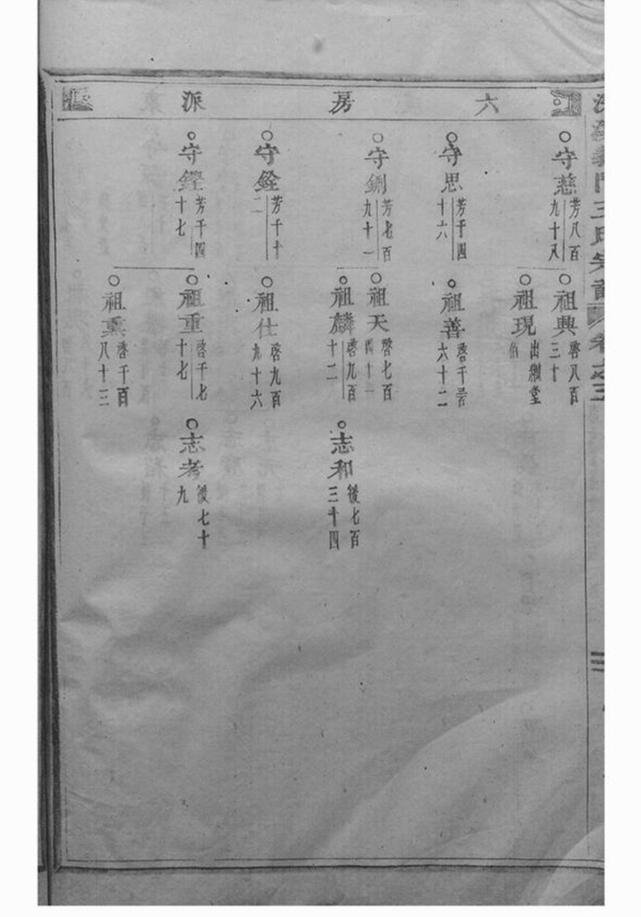 六房派
守慈 芳八百九十八
祖興 啓八百三十
祖現 出繼堂伯
守思 芳千四十六
祖善 啓千
六十二
守鍘 芳七百九十一
祖天 啓七百四十一
祖麟 啓九百十二
志和 後七百三十四
守銓 芳千十二
祖仕 啓九百九十六
守鏗 芳千四十七
祖重 啓千七十七
志考 後七十九
祖熏 啓千百八十三
義門王氏宗譜
卷之三